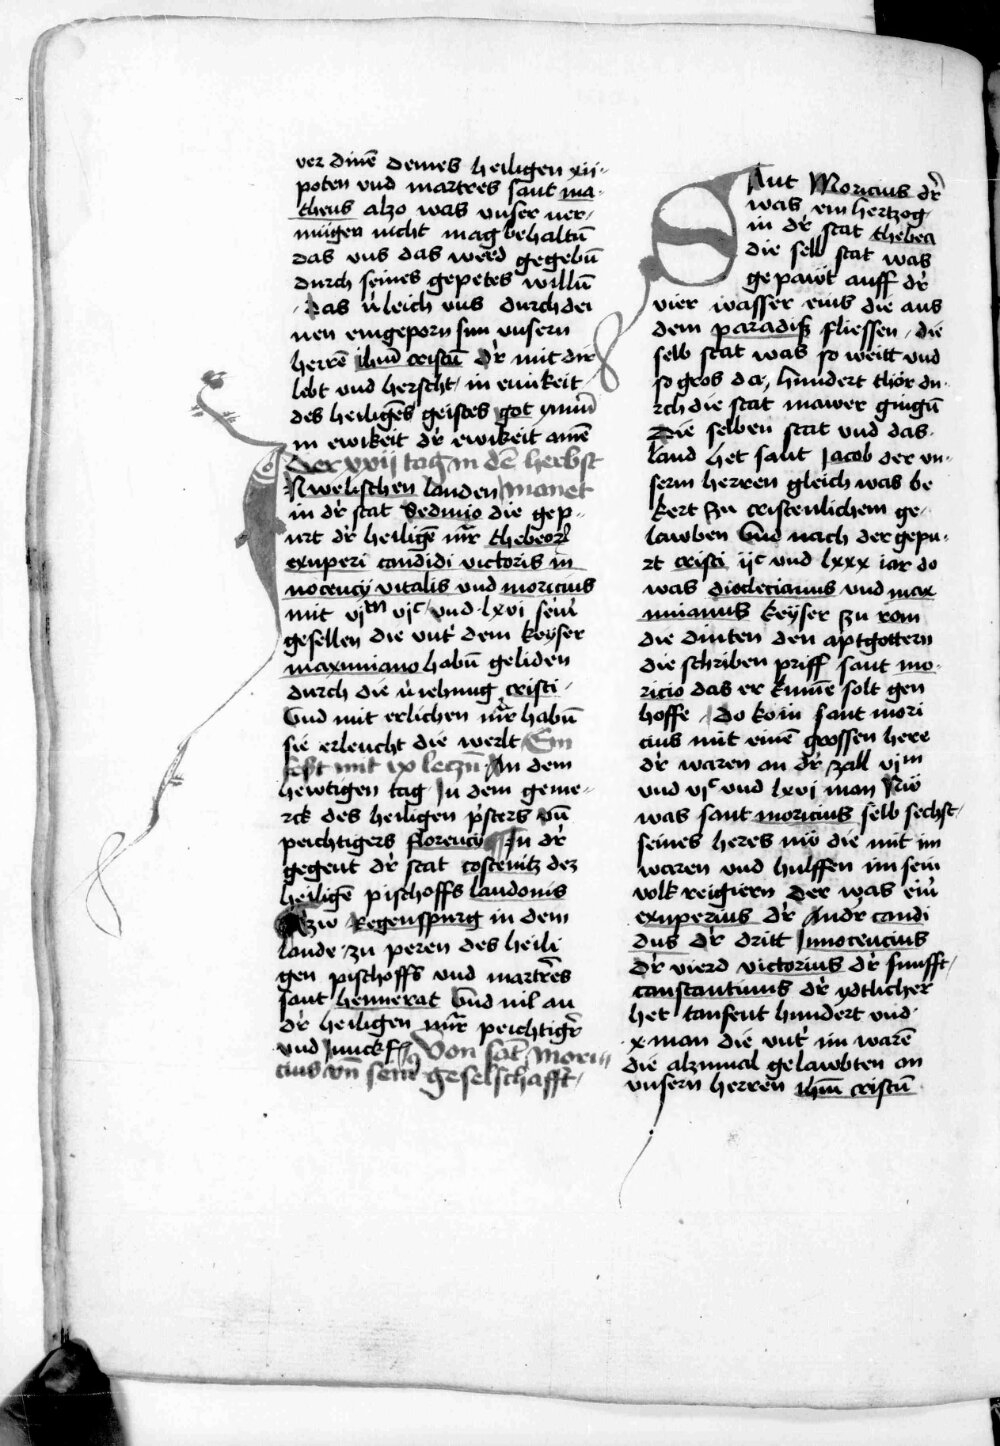 ver dinē deines heiligen xij
poten vnd martres sant ma
theus alzo was vnser ver/
mügen nicht mag behaltū
das vns das werd gegebū
durch seines gepetes willū
das v̇leich vns durch dei
nen eingeporn sun vnsern
herrē ihm̄ cristū dr̄ mit dir
lebt vnd herscht in einikeit
des heiligēs geistes got ymm̄
in ewikeit dr̄ ewikeit amē
Der xxij tag in dē herbst
JN welischen landen manet
in dr̄ stat Sedunio die gep
urt dr̄ heiligē mr̄ thebeor̄
exuperi candidi victoris in
nocencij vitalis vnd moricius
mit vjm vjc vnd lxvi seiū
gesellen die vnt̄ dem keyser
maximiano habū geliden
durch die v̇iehung cristi
Vnd mit erlichen mr̄ habū
sie erleucht die werlt Ein
fest mit ix leczū An dem
hewtigen tag Ju dem geme
rck des heiligen pr̄sters vn̄
peichtigers florencij Jn dr̄
gegent dr̄ stat costenitz dez
heiligē pischoffs laudonis
Czw Regenspurg in dem
lande zu peren des heili
gen pischoffs vnd martrēs
sant hennerat Vnd vil an
dr̄ heiligen mr̄ peichtigr̄
vnd Junckf Von sāt Mori
cius vn̄ seinr̄ geselschafft
SAnt Moricius dr̄
was ein hertzog
in dr̄ stat thebea
die selb stat was
gepawt auff dr̄
vier wasser eins die aus
dem paradiß fliessen die
selb stat was so weitt vnd
so gros daz hundert thör du
rch die stat mawer gingū
Die selben stat vnd das
land het sant Jacob der vn
serm herren gleich was be
kert zu cristenlichem ge
lawben Vnd nach der gepu
rt cristi ijc vnd lxxx iar do
was dioclecianus vnd max
imianus keyser zu rom
die dinten den aptgottern
die schriben priff sant mo
ricio das er kume solt gen
hoffe do kom sant mori
cius mit einem grossen here
dr̄ waren an dr̄ zall vjm
vnd vjc vnd lxvj man Nw
was sant moricius selb sechst
seines heres nw die mit im
waren vnd hulffen im sein
volk reigiern Der was eiū
exuperius dr̄ Andr̄ candi
dus dr̄ dritt Jnnocencius
dr̄ vierd victorius dr̄ funfft
constantinus dr̄ ydtlicher
het tausent hundert vnd
x man die vnt̄ im warē
die alzumal gelawbten an
vnsern herren ihm̄ cristū